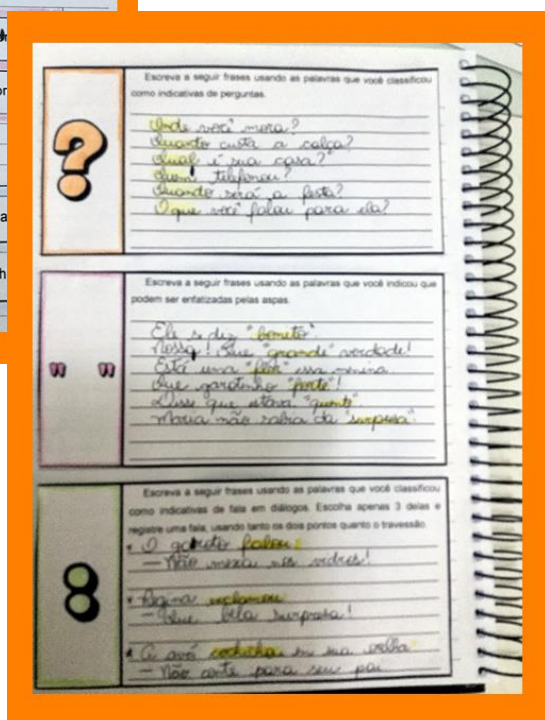 Escreva a seguir frases usando as palavras que você classificou
como indicativas de perguntas.
?
Onde você mora?
Quanto custa a calça?
Qual é sua casa?
Quem telefonou?
Quando será a festa?
O que você falou para ela?
Escreva a seguir frases usando as palavras que você indicou que
podem ser enfatizadas pelas aspas.
" "
Ele se diz "bonito".
Nossa! Que "grande" verdade!
Está uma "flor" essa menina
Que garotinho "forte"!
Disse que estava "quente"
Maria não sabia da "surpresa".
Escreva a seguir frases usando as palavras que você classificou
como indicativas de fala em diálogos. Escolha apenas 3 delas e
registre uma fala, usando tanto os dois pontos quanto o travessão.
:
O garoto falou:
— Não mexa nos vidros!
Regina exclamou:
— Que bela surpresa!
A avó cochichou em sua orelha:
— Não conte para seu pai